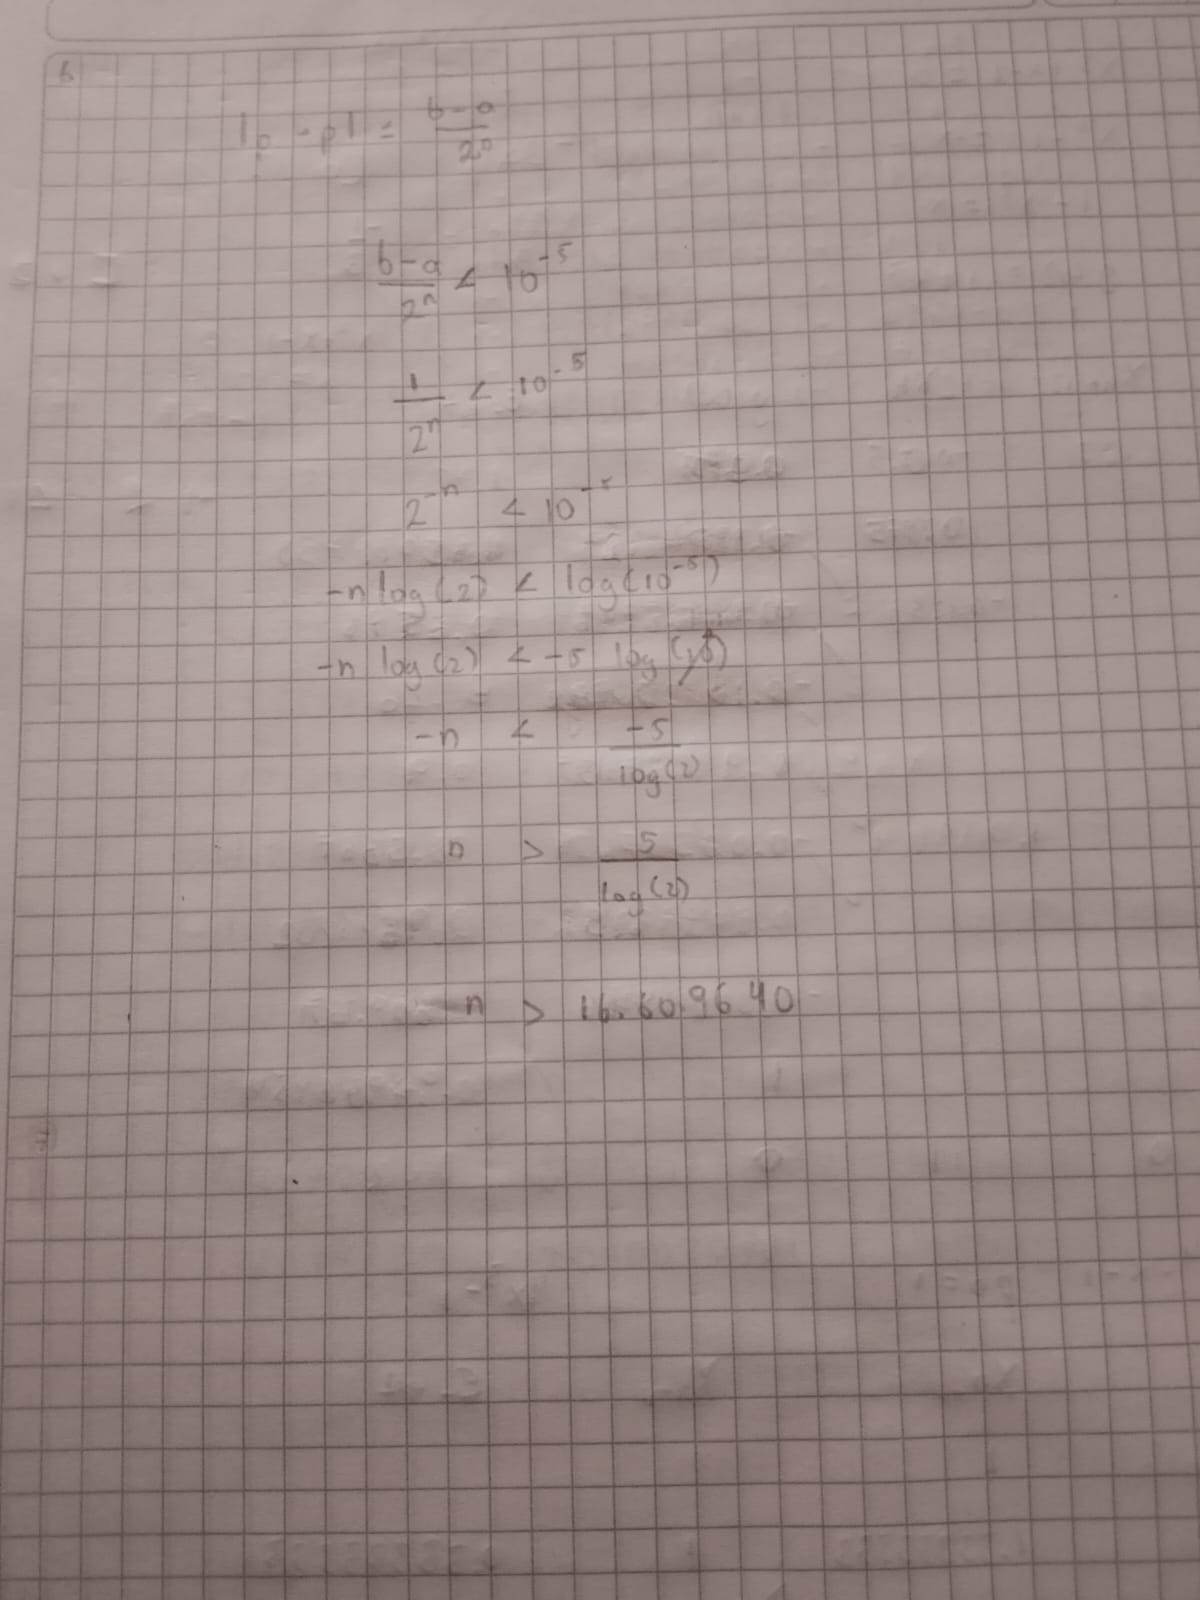 6
|p - p| = b-a / 2^n
b-a / 2^n < 10^-5
1 / 2^n < 10^-5
2^-n < 10^-5
-n log(2) < log(10^-5)
-n log(2) < -5 log(10)
-n < -5 / log(2)
n > 5 / log(2)
n > 16.609640